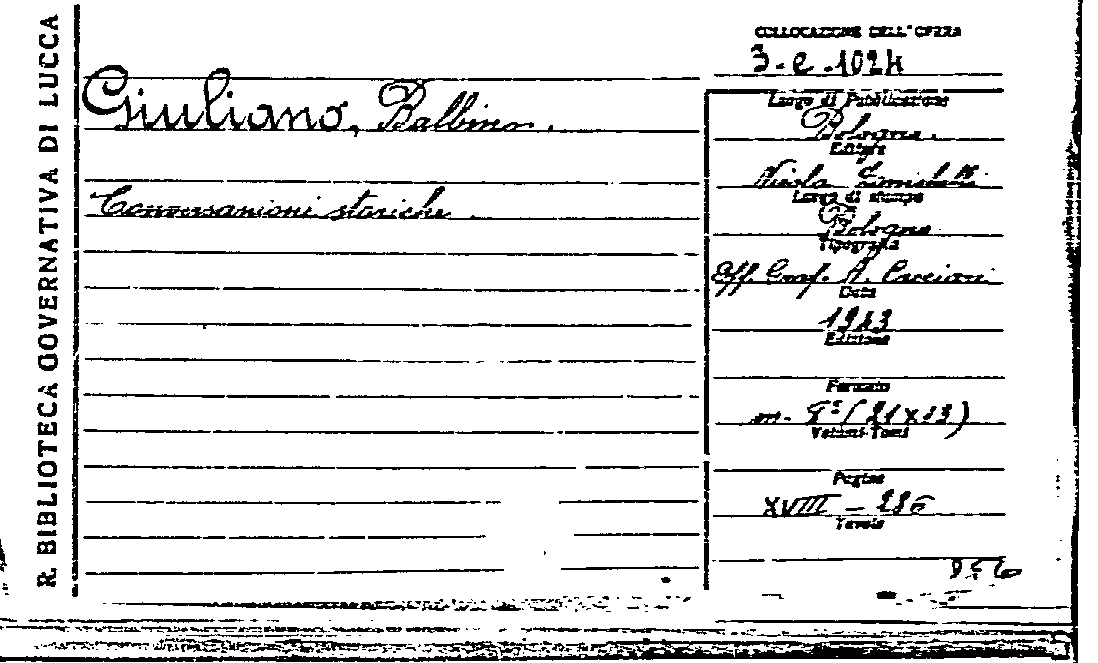 R. BIBLIOTECA GOVERNATIVA DI LUCCA
COLLOCAZIONE DELL'OPERA
3-e-1024
Giuliano, Balbino.
Conversazioni storiche.
Luogo di Pubblicazione
Bologna.
Editore
Nicola Zanichelli
Luogo di stampa
Bologna
Tipografia
Off. Graf. A. Cacciari
Data
1943
Edizione
Formato
m. 8° (21x13)
Volumi-Tomi
Pagine
XVIII - 286
Tavole